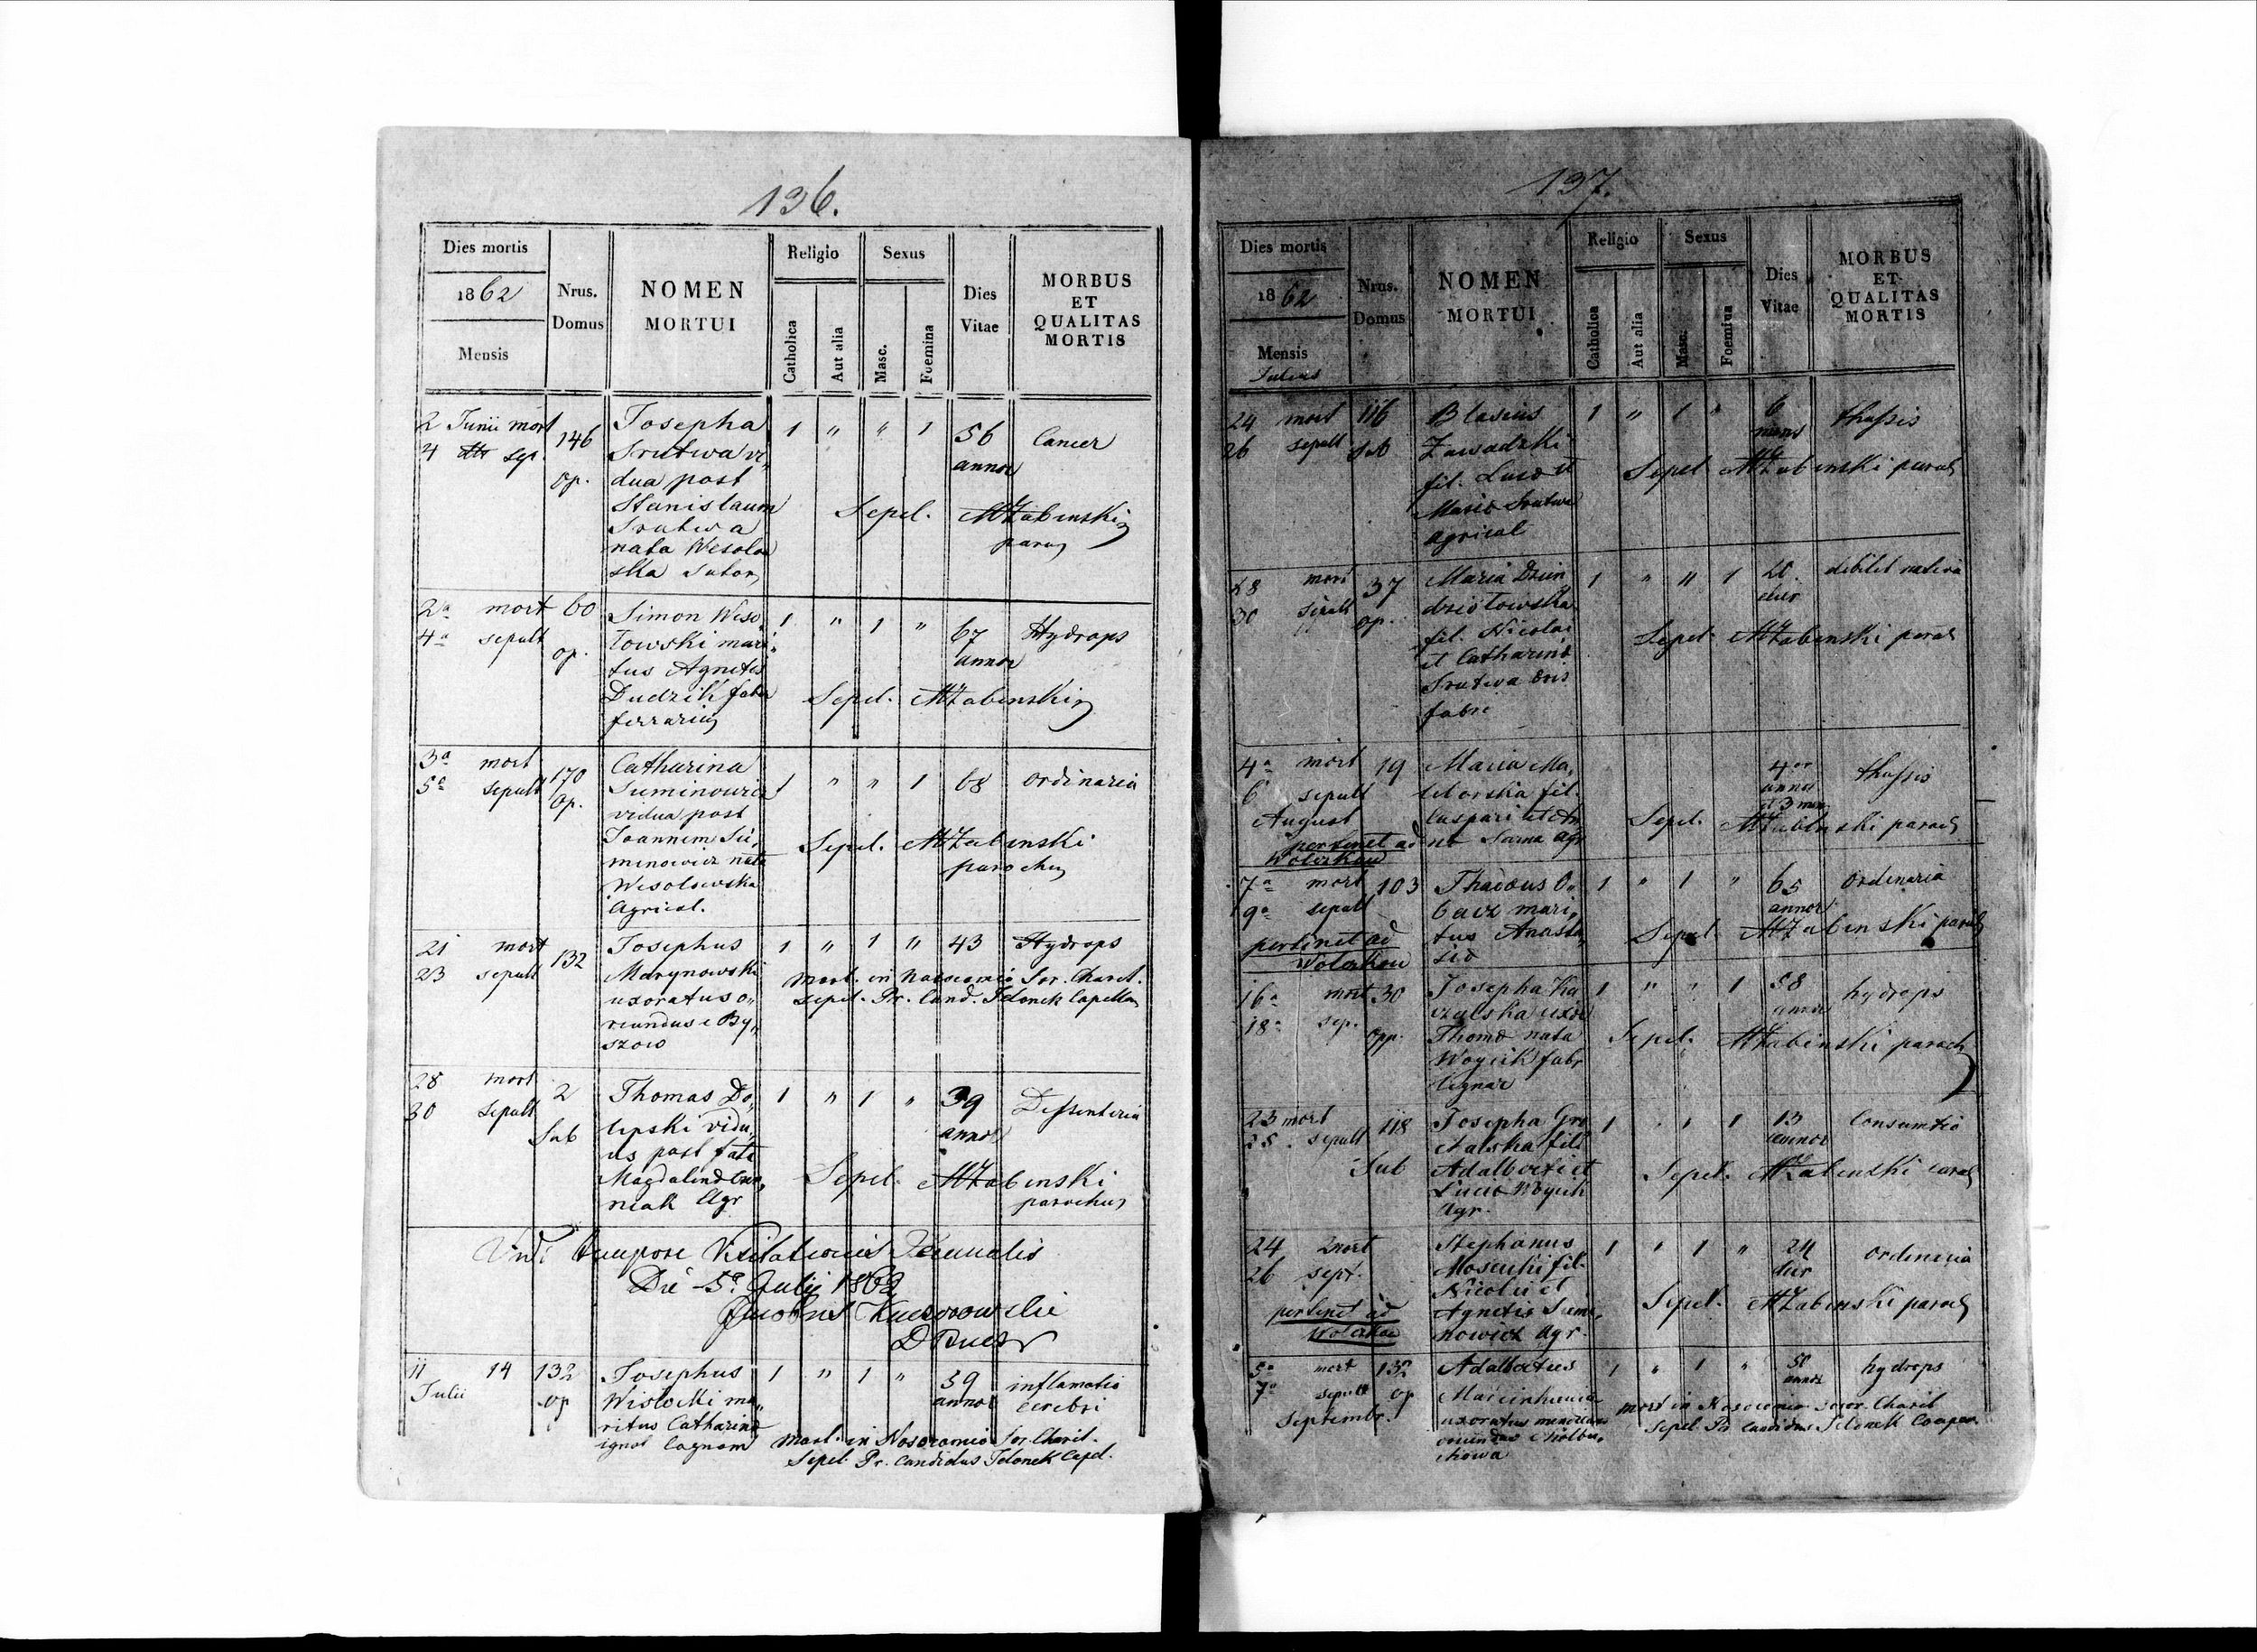 136.
Dies mortis
1862
Mensis
Nrus. Domus
NOMEN MORTUI
Religio
Catholica
Aut alia
Sexus
Masc.
Foemina
Dies Vitae
MORBUS ET QUALITAS MORTIS
2 Junii mort 146 Josepha 1 " " 1 56 Cancer
4 sep. op. Srutwa vi„ annor
dua post
Stanislaum Sepel. MZabinski
Srutwa paroch
nata Wesolow
ska Sutor
2a mort 60 Simon Weso„ 1 " 1 " 67 Hydrops
4a sepult op. łowski mari„ annor
tus Agnetis
Dudzik faber Sepel. MZabinski
ferrarius
3a mort 170 Catharina
5a sepult op. Suminowicz 1 " " 1 68 ordinaria
vidua post
Joannem Su„ Sepel. MZabinski
minowicz nata parochus
Wesolowska
Agricol.
21 mort 132 Josephus 1 " 1 " 43 Hydrops
23 sepult Marynowski mort. in Nosocomio Sor. Charit.
uxoratus o„ sepel. Pr. Cand. Jelonek Capellan
riundus e By„
szow
28 mort 2 Thomas Do„ 1 " 1 " 39 Dessenteria
30 sepult Sub lipski vidu„ annor
us post fata
Magdalena Sepel. MZabinski
niak Agr parochus
Vidi tempore Visitationis Decanalis
Die 5a Julij 1862
11 14 132 Josephus 1 " 1 " 39 inflamatio
Julii op Wislocki ma„ annor cerebri
ritus Catharina
ignot Cognom mort. in Nosocomio Sor. Charit.
Sepel. Pr. Candidus Jelonek Capel.
137.
Dies mortis
1862
Mensis
Julius
Nrus. Domus
NOMEN MORTUI
Religio
Catholica
Aut alia
Sexus
Masc.
Foemina
Dies Vitae
MORBUS ET QUALITAS MORTIS
24 mort 116 Blasius 1 " 1 " 6 thussis
26 sepult Sub Zawadzki mens
fil. Luca et Sepel MZabinski paroch
Maria Srutwa
Agricol
28 mort 37 Maria Dzien 1 " " 1 20 debilit nativa
30 sepult op. dziołowska dier
fil. Nicolai Sepel. MZabinski paroch
et Catharina
Srutwa
fabri
4a mort 19 Maria Ma„ 4or thussis
6 sepult fil. annor et 3 mens
August Caspari et An Sepel. MZabinski paroch
pertinet ad na Sarna Agr
7a mort 103 Thadeus O„ 1 " 1 " 65 ordinaria
9a sepult bacz mari„ annor
pertinet ad tus Anasta„ Sepel. MZabinski paroch
sia
16a mort 30 Josepha Ka 1 " " 1 58 hydrops
18a sep. opp. uxor annor
Thoma nata Sepel. MZabinski paroch
Woycik fabr
lignar
23 mort 118 Josepha Gro 1 " " 1 13 Consumtio
25 sepult Sub fil. annor
Adalberti et Sepel. MZabinski paroch
Lucia Woycik
Agr.
24 mort Stephanus 1 " 1 " 24 ordinaria
26 sept. fil. dier
Nicolai et Sepel. MZabinski paroch
pertinet ad Agnetis Sumi„
nowicz Agr.
5a mort 132 Adalbertus 1 " 1 " 50 hydrops
7a sepult op annor
Septembr. uxoratus mort in Nosocomio Soror. Charit
Sepel. Pr Candidus Jelonek